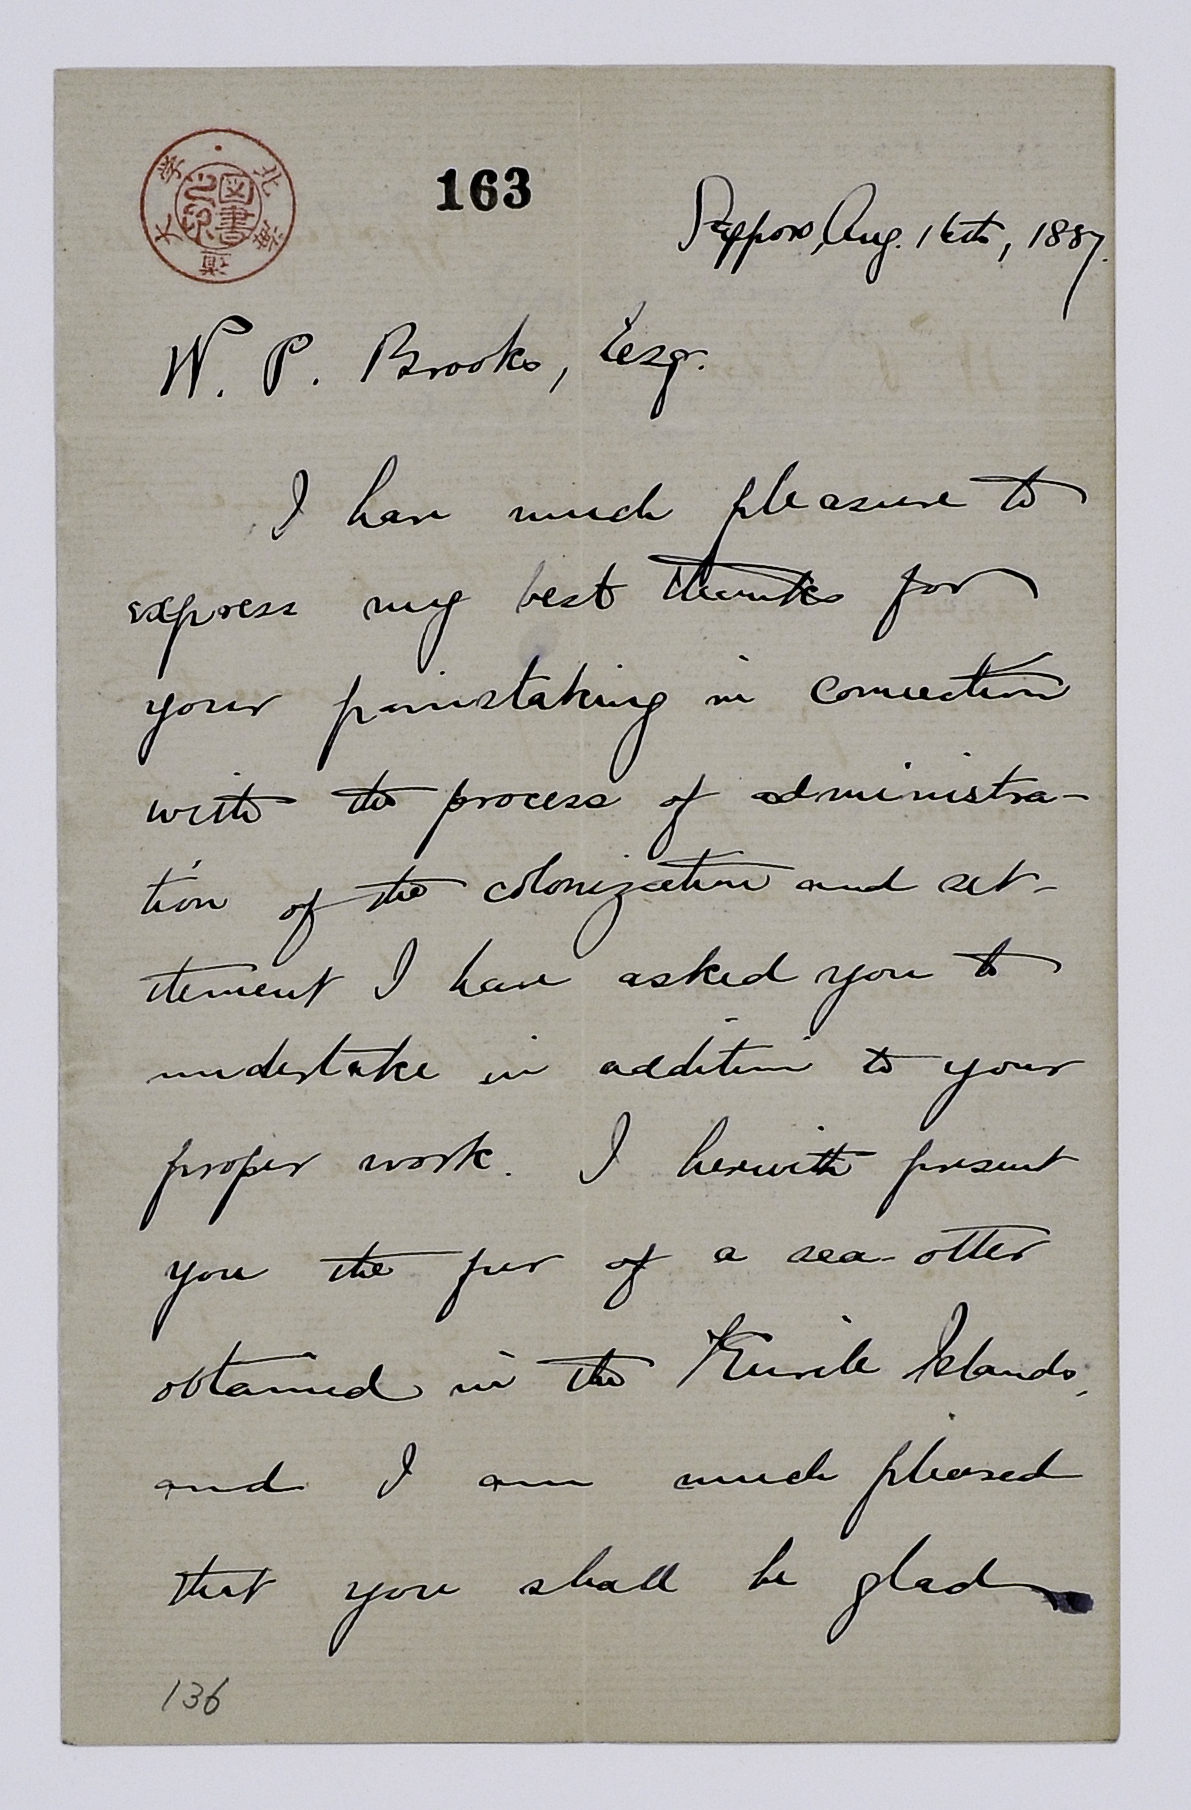 北海道大学
図書之印
163
Sapporo, Aug. 16th, 1887.
W. P. Brooks, Esqr.
I have much pleasure to
express my best thanks for
your painstaking in connection
with the process of administra-
tion of the colonization and set-
tlement I have asked you to
undertake in addition to your
proper work. I herewith present
you the fur of a sea-otter
obtained in the Kurile Islands,
and I am much pleased
that you shall be glad
136